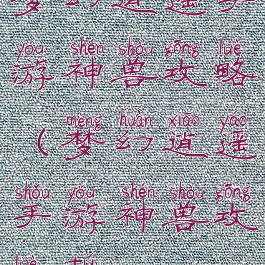 梦幻逍遥手
yóu shén shòu gōng lüè
游神兽攻略
mèng huàn xiāo yáo
（梦幻逍遥
shǒu yóu shén shòu gōng
手游神兽攻